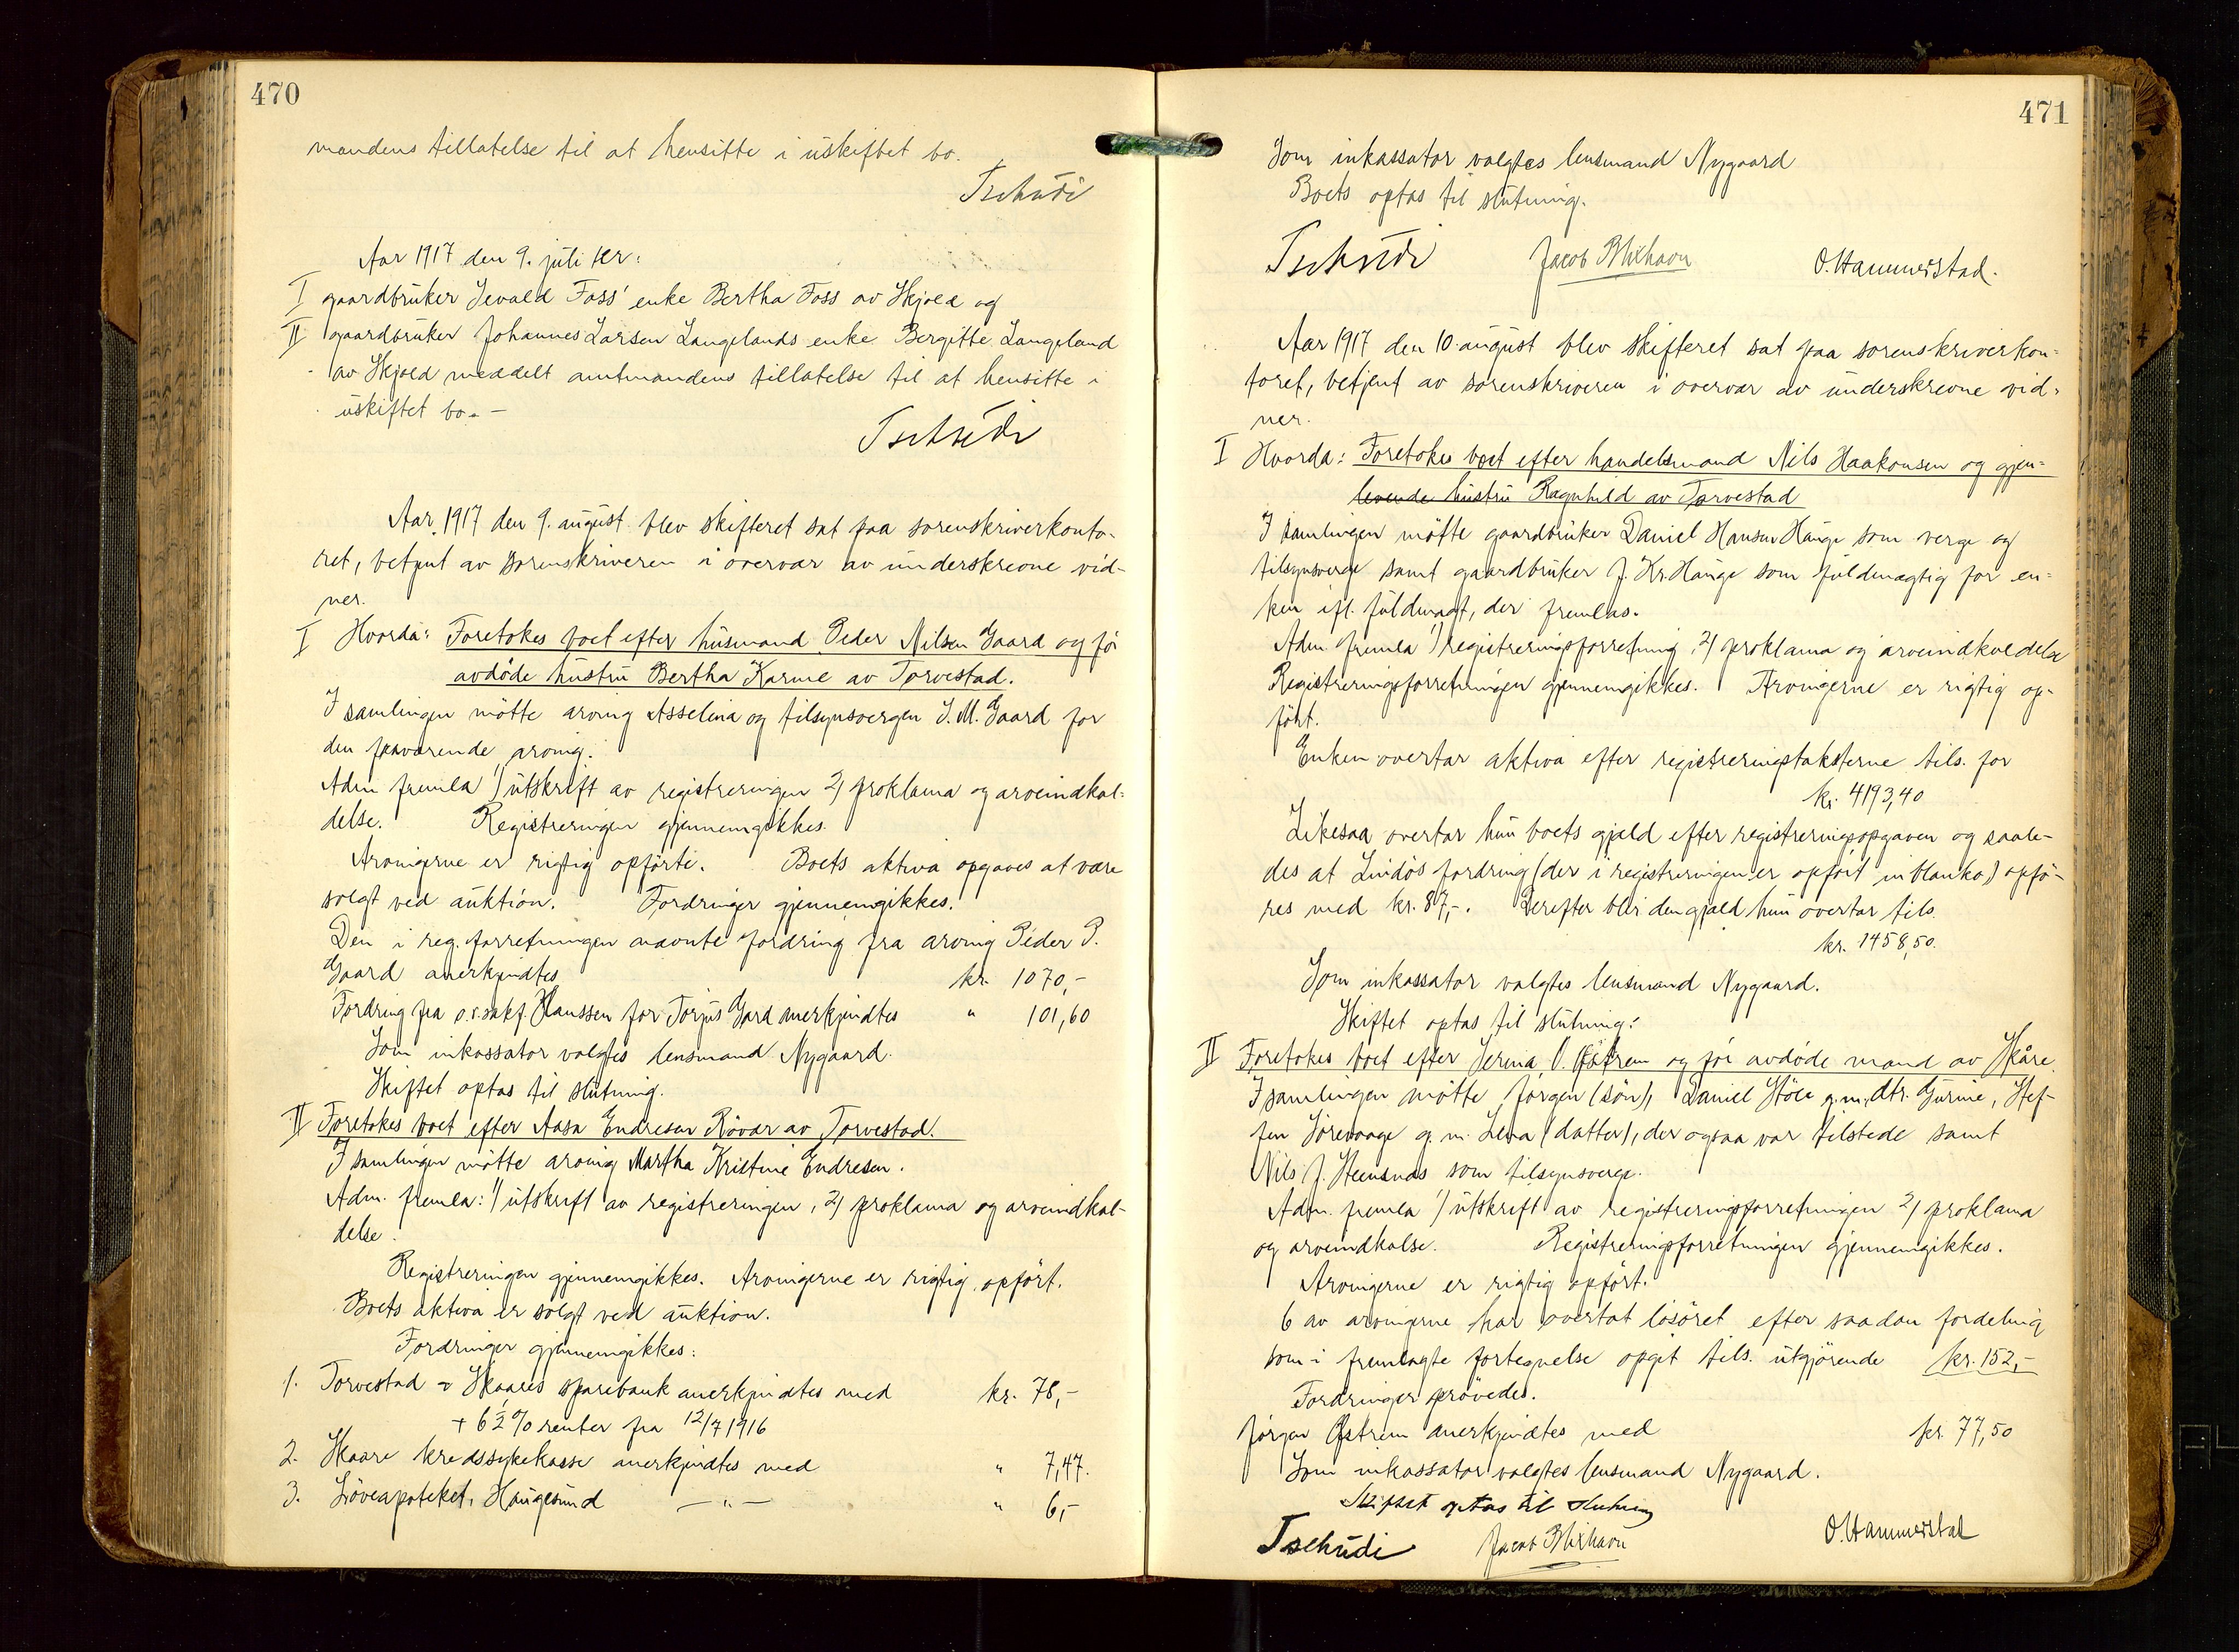 470
mandens tillatelse til at hensitte i uskiftet bo.
Tschudi
Aar 1917 den 9. juli er:
I gaardbruker Sevald Foss' enke Bertha Foss av Skjold og
II gaardbruker Johannes Larsen Langelands enke Bergitte Langeland
av Skjold meddelt amtmandens tillatelse til at hensitte i
uskiftet bo. —
Tschudi
Aar 1917 den 9. august blev skifteret sat paa sorenskriverkonto-
ret, betjent av sorenskriveren i overvær av underskrevne vid-
ner.
I Hvorda: Foretokes boet efter husmand Peder Nilsen Gaard og før
avdöde hustru Bertha Karine av Torvestad.
I samlingen mötte arving Asselina og tilsynsvergen J. M. Gaard for
den fraværende arving.
Adm fremla 1) utskrift av registreringen 2) proklama og arveindkal-
delse. Registreringen gjennemgikkes.
Arvingerne er rigtig opförte. Boets aktiva opgaves at være
solgt ved auktion. Fordringer gjennemgikkes.
Den i reg. forretningen nævnte fordring fra arving Peder P.
Gaard anerkjendtes kr. 1070,-
Fordring fra o.r.sakf. Hanssen for Torjus Gard anerkjendtes " 101,60
Som inkassator valgtes lensmand Nygaard.
Skiftet optas til slutning.
II Foretokes boet efter Aasa Endresen Rövær av Torvestad.
I samlingen mötte arving Martha Kristine Endresen.
Adm. fremla: 1) utskrift av registreringen, 2) proklama og arveindkal-
delse.
Registreringen gjennemgikkes. Arvingerne er rigtig opfört.
Boets aktiva er solgt ved auktion.
Fordringer gjennemgikkes:
1. Torvestad & Skaares sparebank anerkjendtes med kr. 78,-
+ 6½ % renter fra 12/7 1916
2. Skaare kredssykekasse anerkjendtes med " 7,47.
3. Löveapoteket, Haugesund — " — " 6,-
471
Som inkassator valgtes lensmand Nygaard
Boets optas til slutning.
Tschudi Jacob Blixhavn O. Hammerstad.
Aar 1917 den 10. august blev skifteret sat paa sorenskriverkon-
toret, betjent av sorenskriveren i overvær av underskrevne vid-
ner.
I Hvorda: Foretokes boet efter handelsmand Nils Haakonsen og gjen-
levende hustru Ragnhild av Torvestad
I samlingen mötte gaardbruker Daniel Hansen Hauge som verge og
tilsynsverge samt gaardbruker J. Kr. Hauge som fuldmægtig for en-
ken ifl. fuldmagt, der fremlas.
Adm. fremla 1) registreringsforretning, 2) proklama og arveindkaldelse
Registreringsforretningen gjennemgikkes. Arvingerne er rigtig op-
fört.
Enken overtar aktiva efter registreringstaksterne tils. for
kr. 4193,40
Likesaa overtar hun boets gjæld efter registreringsopgaven og saale-
des at Lindös fordring (der i registreringen er opfört in blanko) opfö-
res med kr. 87,-. Derefter blir den gjæld hun overtar tils.
kr. 1458,50.
Som inkassator valgtes lensmand Nygaard.
Skiftet optas til slutning.
II Foretokes boet efter Serina O. Østrem og før avdöde mand av Skåre.
I samlingen mötte Jørgen (sön), Daniel Støle g.m. dtr. Gurine, Stef-
fen Sörevaage g. m. Lena (datter), der ogsaa var tilstede samt
Nils J. Stensnæs som tilsynsverge.
Adm. fremla 1) utskrift av registreringsforretningen 2) proklama
og arveindkalse. Registreringsforretningen gjennemgikkes.
Arvingerne er rigtig opfört.
6 av arvingerne har overtat lösöret efter saadan fordeling
som i fremlagte fortegnelse opgit tils. utgjörende kr. 152,-
Fordringer prövedes.
Jörgen Østrem anerkjendtes med kr. 77,50
Som inkassator valgtes lensmand Nygaard.
Skiftet optas til slutning
Tschudi Jacob Blixhavn O. Hammerstad